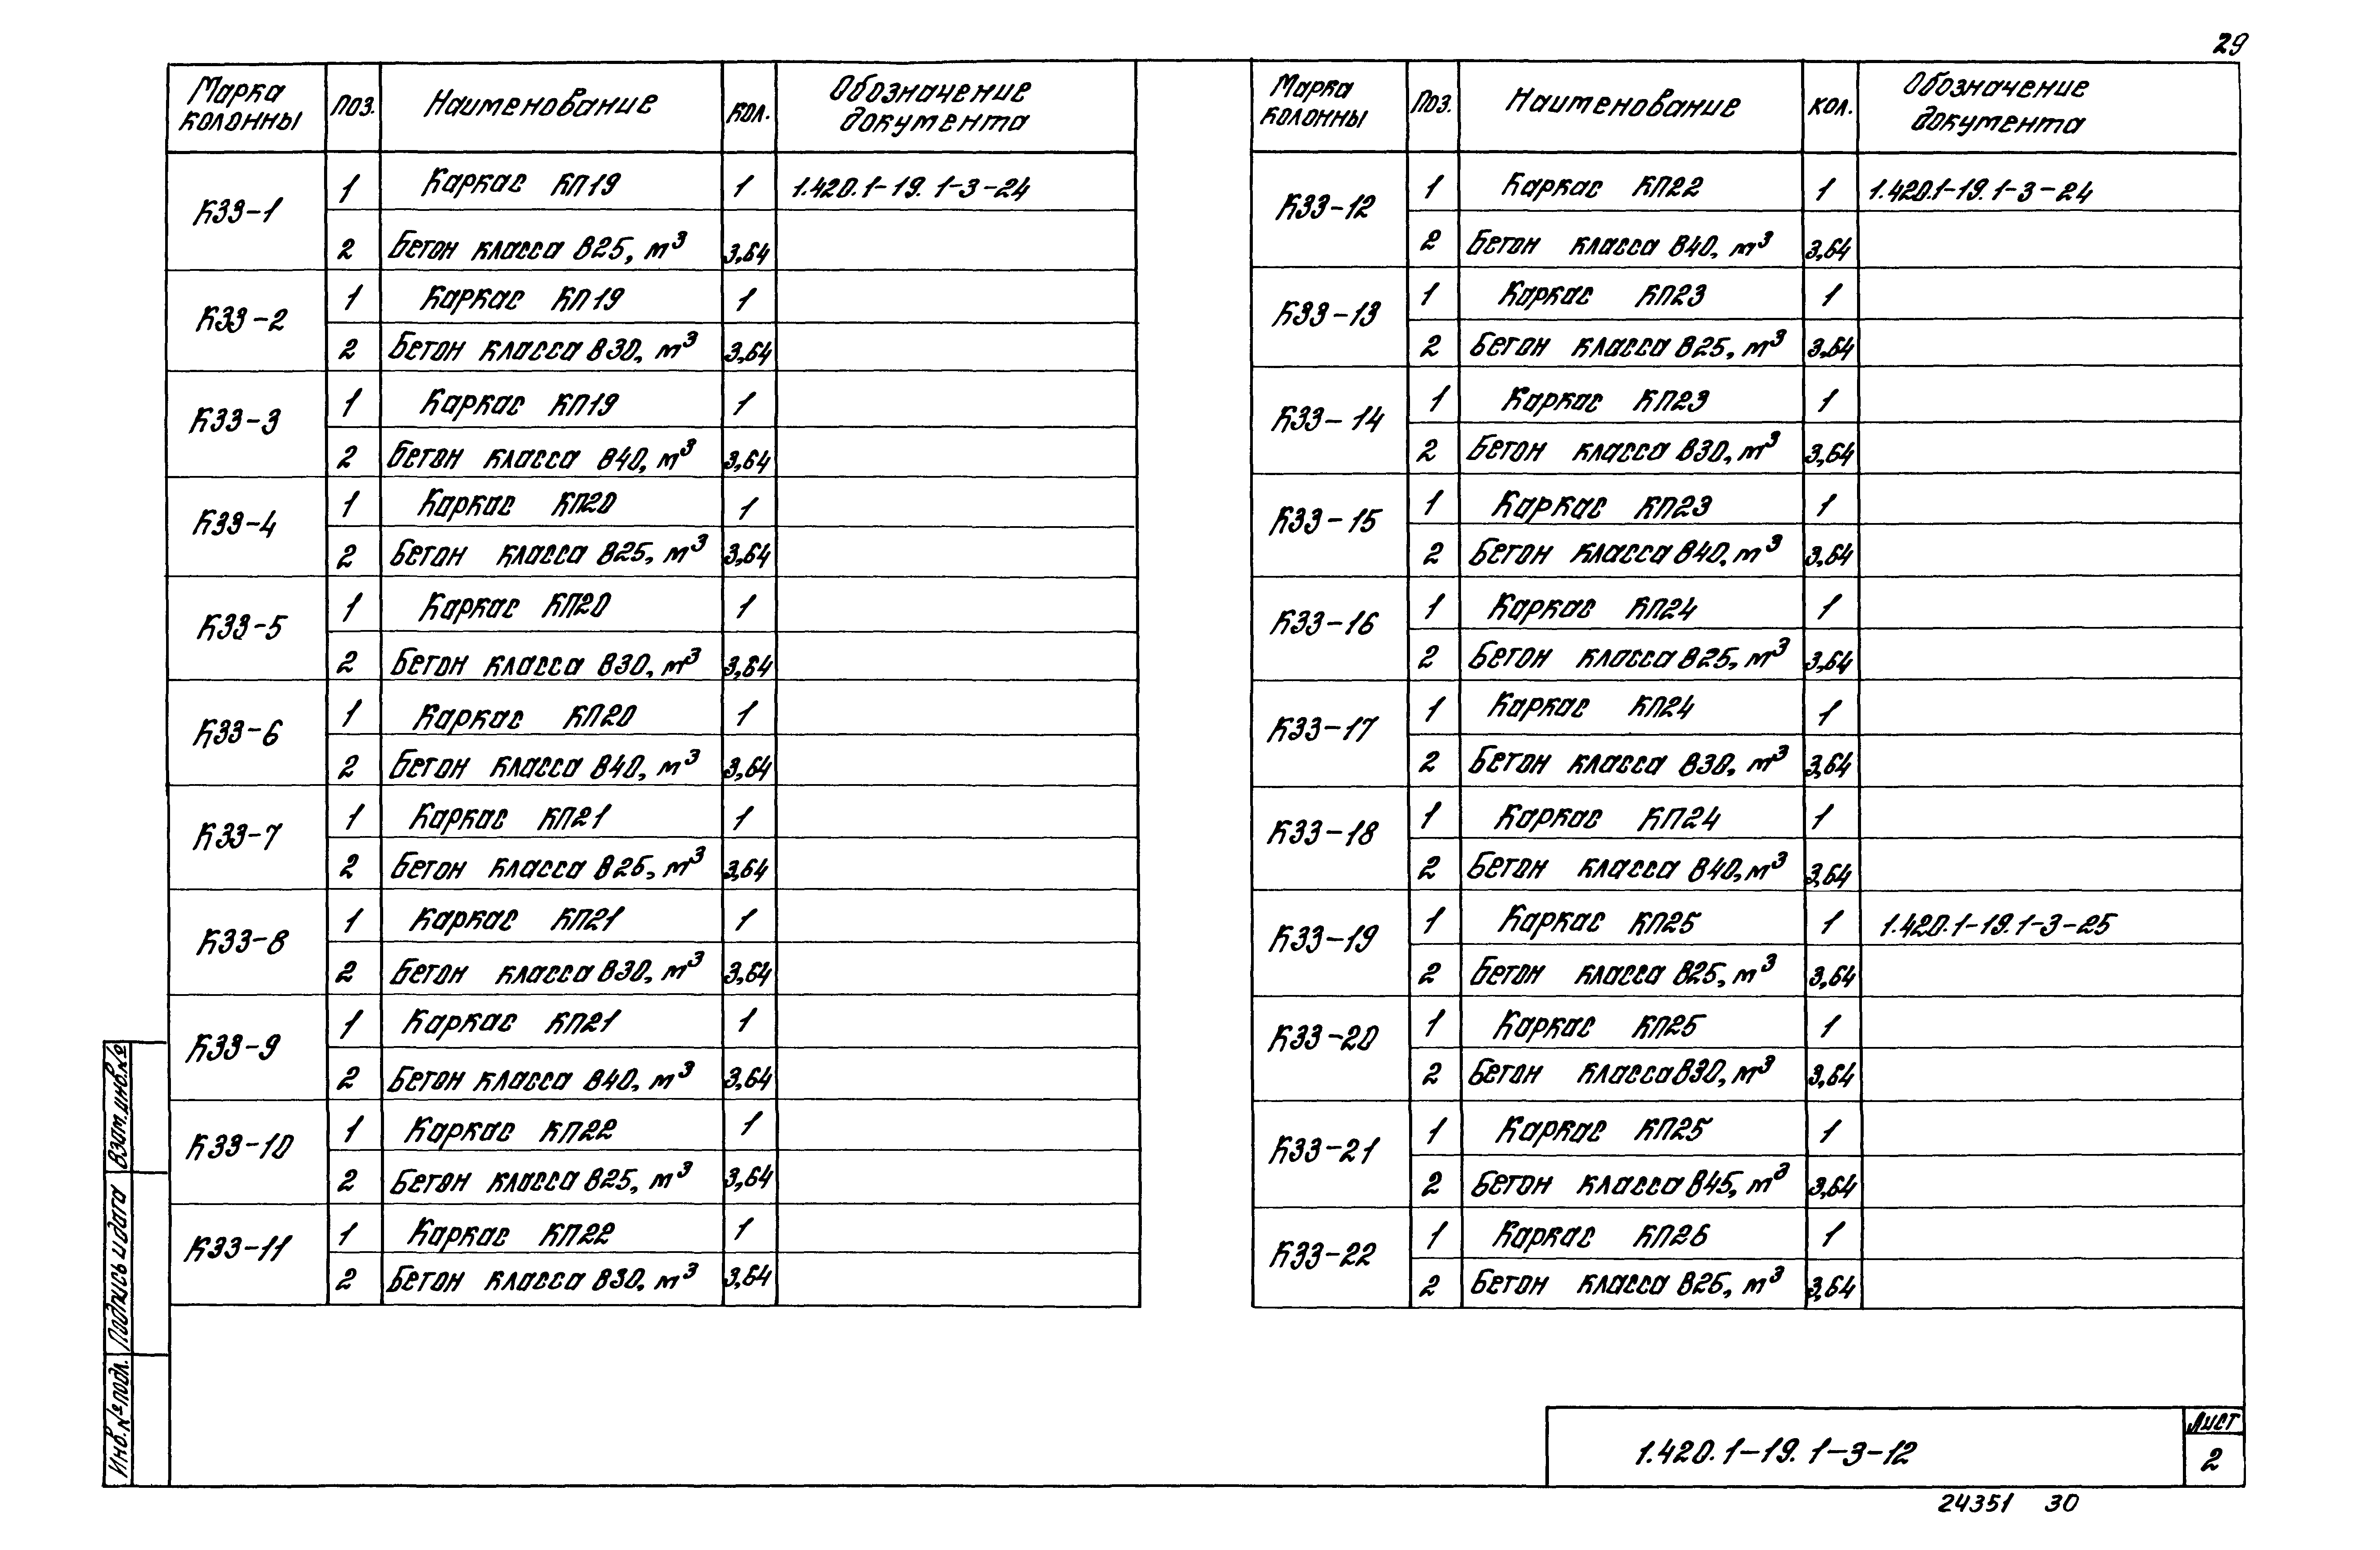 29
Марка колонны Поз. Наименование Кол. Обозначение документа
К33-1 1 Каркас КП19 1 1.420.1-19.1-3-24
2 Бетон класса В25, м³ 3,64
К33-2 1 Каркас КП19 1
2 Бетон класса В30, м³ 3,64
К33-3 1 Каркас КП19 1
2 Бетон класса В40, м³ 3,64
К33-4 1 Каркас КП20 1
2 Бетон класса В25, м³ 3,64
К33-5 1 Каркас КП20 1
2 Бетон класса В30, м³ 3,64
К33-6 1 Каркас КП20 1
2 Бетон класса В40, м³ 3,64
К33-7 1 Каркас КП21 1
2 Бетон класса В25, м³ 3,64
К33-8 1 Каркас КП21 1
2 Бетон класса В30, м³ 3,64
К33-9 1 Каркас КП21 1
2 Бетон класса В40, м³ 3,64
К33-10 1 Каркас КП22 1
2 Бетон класса В25, м³ 3,64
К33-11 1 Каркас КП22 1
2 Бетон класса В30, м³ 3,64
Марка колонны Поз. Наименование Кол. Обозначение документа
К33-12 1 Каркас КП22 1 1.420.1-19.1-3-24
2 Бетон класса В40, м³ 3,64
К33-13 1 Каркас КП23 1
2 Бетон класса В25, м³ 3,64
К33-14 1 Каркас КП23 1
2 Бетон класса В30, м³ 3,64
К33-15 1 Каркас КП23 1
2 Бетон класса В40, м³ 3,64
К33-16 1 Каркас КП24 1
2 Бетон класса В25, м³ 3,64
К33-17 1 Каркас КП24 1
2 Бетон класса В30, м³ 3,64
К33-18 1 Каркас КП24 1
2 Бетон класса В40, м³ 3,64
К33-19 1 Каркас КП25 1 1.420.1-19.1-3-25
2 Бетон класса В25, м³ 3,64
К33-20 1 Каркас КП25 1
2 Бетон класса В30, м³ 3,64
К33-21 1 Каркас КП25 1
2 Бетон класса В45, м³ 3,64
К33-22 1 Каркас КП26 1
2 Бетон класса В25, м³ 3,64
Взам.инв.№
Подпись и дата
Инв.№подл.
1.420.1-19.1-3-12
Лист
2
24351 30